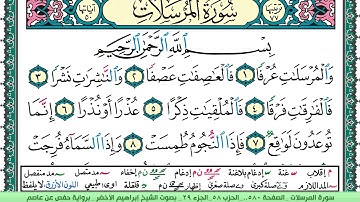 سُورَةُ المُرْسَلَاتِ
بِسْمِ ٱللَّهِ ٱلرَّحْمَٰنِ ٱلرَّحِيمِ
وَٱلْمُرْسَلَٰتِ عُرْفًا ١ فَٱلْعَٰصِفَٰتِ عَصْفًا ٢ وَٱلنَّٰشِرَٰتِ نَشْرًا ٣
فَٱلْفَٰرِقَٰتِ فَرْقًا ٤ فَٱلْمُلْقِيَٰتِ ذِكْرًا ٥ عُذْرًا أَوْ نُذْرًا ٦ إِنَّمَا
تُوعَدُونَ لَوَٰقِعٌ ٧ فَإِذَا ٱلنُّجُومُ طُمِسَتْ ٨ وَإِذَا ٱلسَّمَآءُ فُرِجَتْ
سورة المرسلات الصفحة ٥٨٠... الحزب ٥٨ .الجزء ٢٩ بصوت الشيخ إبراهيم الأخضر . رواية حفص عن عاصم